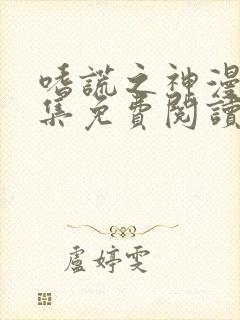 嗜謊之神漫
集免費閱讀
盧婷雯